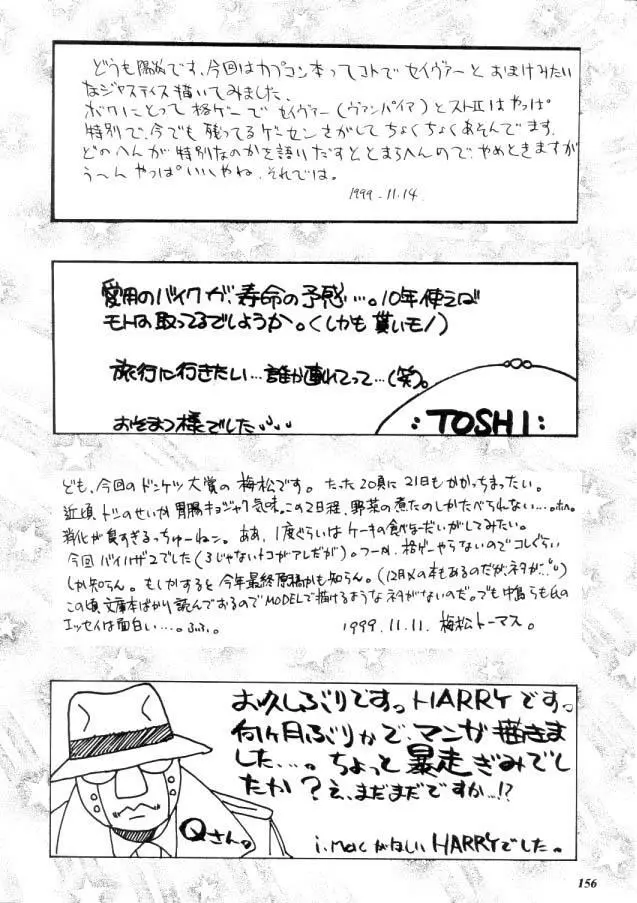 どうも陽炎です、今回はカプコン本ってコトでセイヴァーとおまけみたい
なジャスティス描いてみました。
ボクにとって格ゲーでセイヴァー(ヴァンパイア)とストⅡはやっぱ
特別で、今でも残ってるゲーセンさがしてちょくちょくあそんでます。
どのへんが特別なのかを語りだすととまらへんので、やめときますが
う〜んやっぱいいやね、それでは。
1999.11.14
愛用のバイクが、寿命の予感…。10年使えば
モトは取ってるでしょうか。(しかも貰いモノ)
旅行に行きたい…誰か連れてって…(笑)。
おそまつ様でした
:TOSHI:
ども、今回のドンケツ大賞の梅松です。たった20頁に21日もかかっちまったい。
近頃、トシのせいか胃腸キョジャク気味。この2日程、野菜の煮たのしかたべられない…。
消化が良すぎるっちゅーねン。ああ、1度ぐらいはケーキの食べほーだいがしてみたい。
今回バイハザ2でした(3じゃないトコがアレだが)。つーか、格ゲーやらないのでコレぐらい
しか知らん。もしかすると今年最終原稿かも知らん。(12月〆の本もあるのだが、ネタが…)
この頃、文庫本ばかり読んでおるのでMODELで描けるようなネタがないのだ。でも中島らも氏の
エッセイは面白い…。ふふ。
1999.11.11. 梅松トーマス。
お久しぶりですっHARRYですっ
何ヶ月ぶりかで、マンガ描きま
した…。ちょっと暴走ぎみでし
たか?え、まだまだですか…!?
Qさん。
i.macがほしいHARRYでした。
156